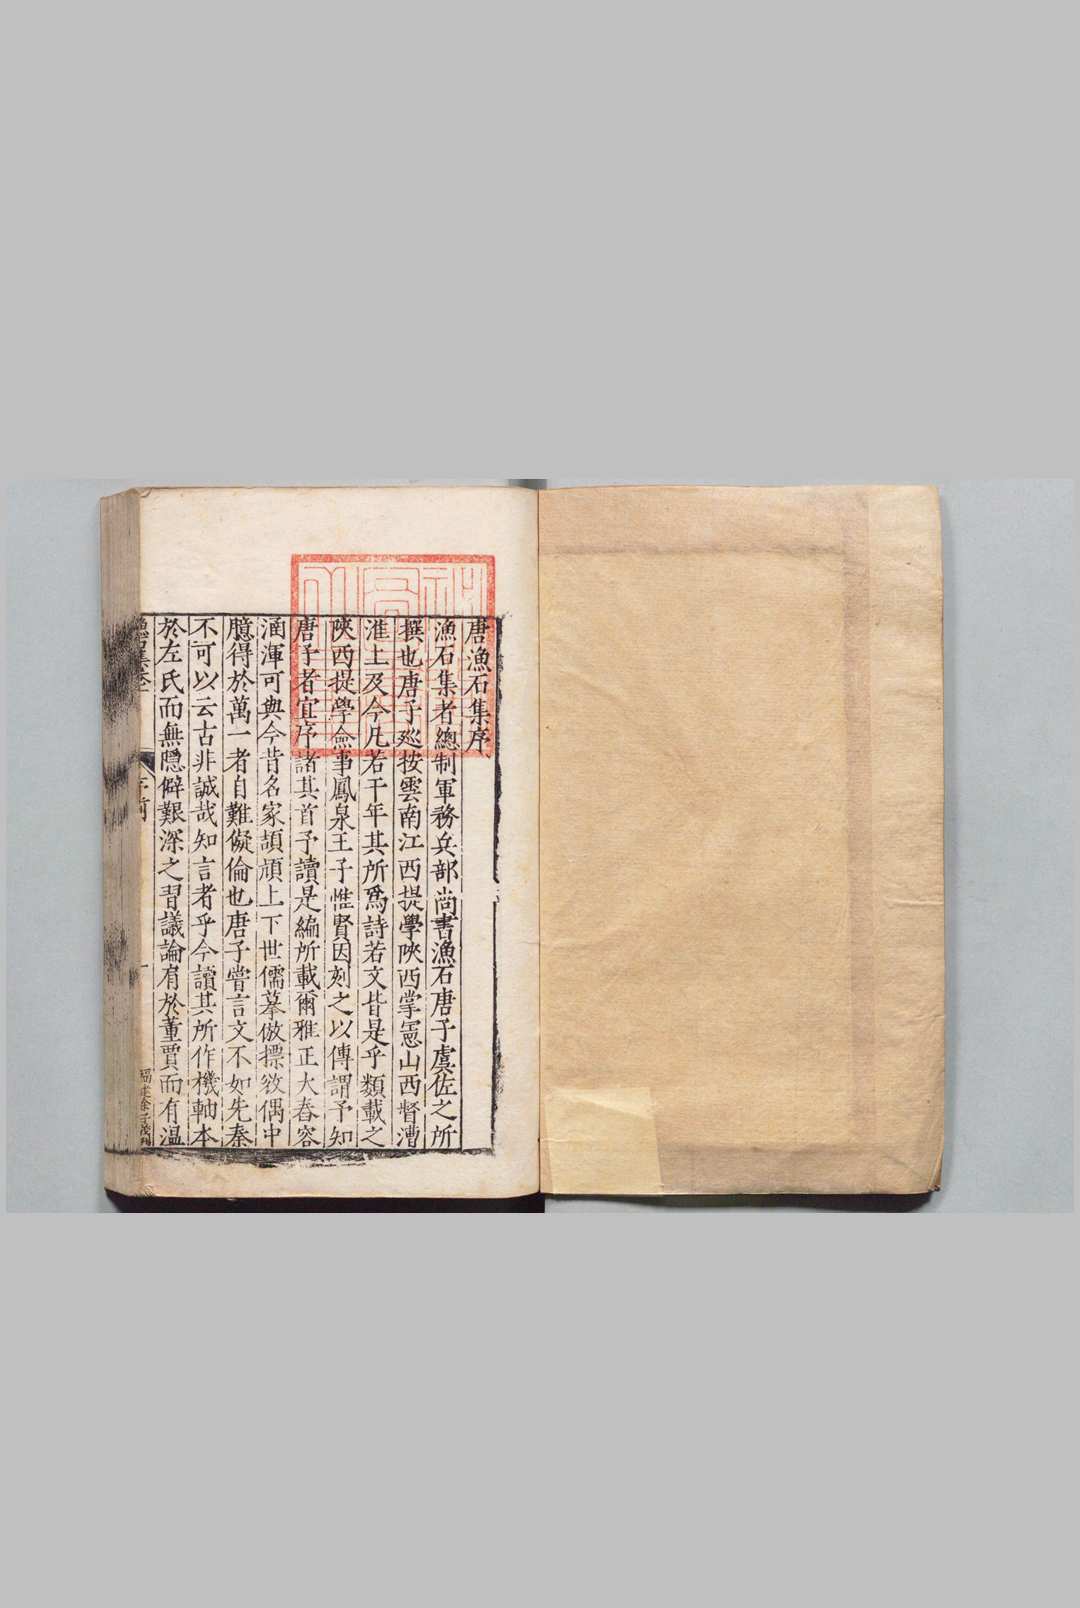 唐漁石集序
漁石集者總制軍務兵部尚書漁石唐子虞佐之所
撰也唐子廵按雲南江西提學陝西掌憲山西督漕
淮上及今凡若干年其所爲詩若文皆是乎類載之
陝西提學僉事鳳泉王子惟賢因刻之以傳謂予知
唐子者宜序諸其首予讀是編所載爾雅正大舂容
涵渾可與今昔名家頡頏上下世儒摹倣摽竊偶中
臆得於萬一者自難儗倫也唐子嘗言文不如先秦
不可以云古非誠哉知言者乎今讀其所作機軸本
於左氏而無隱僻艱深之習議論肩於董賈而有温